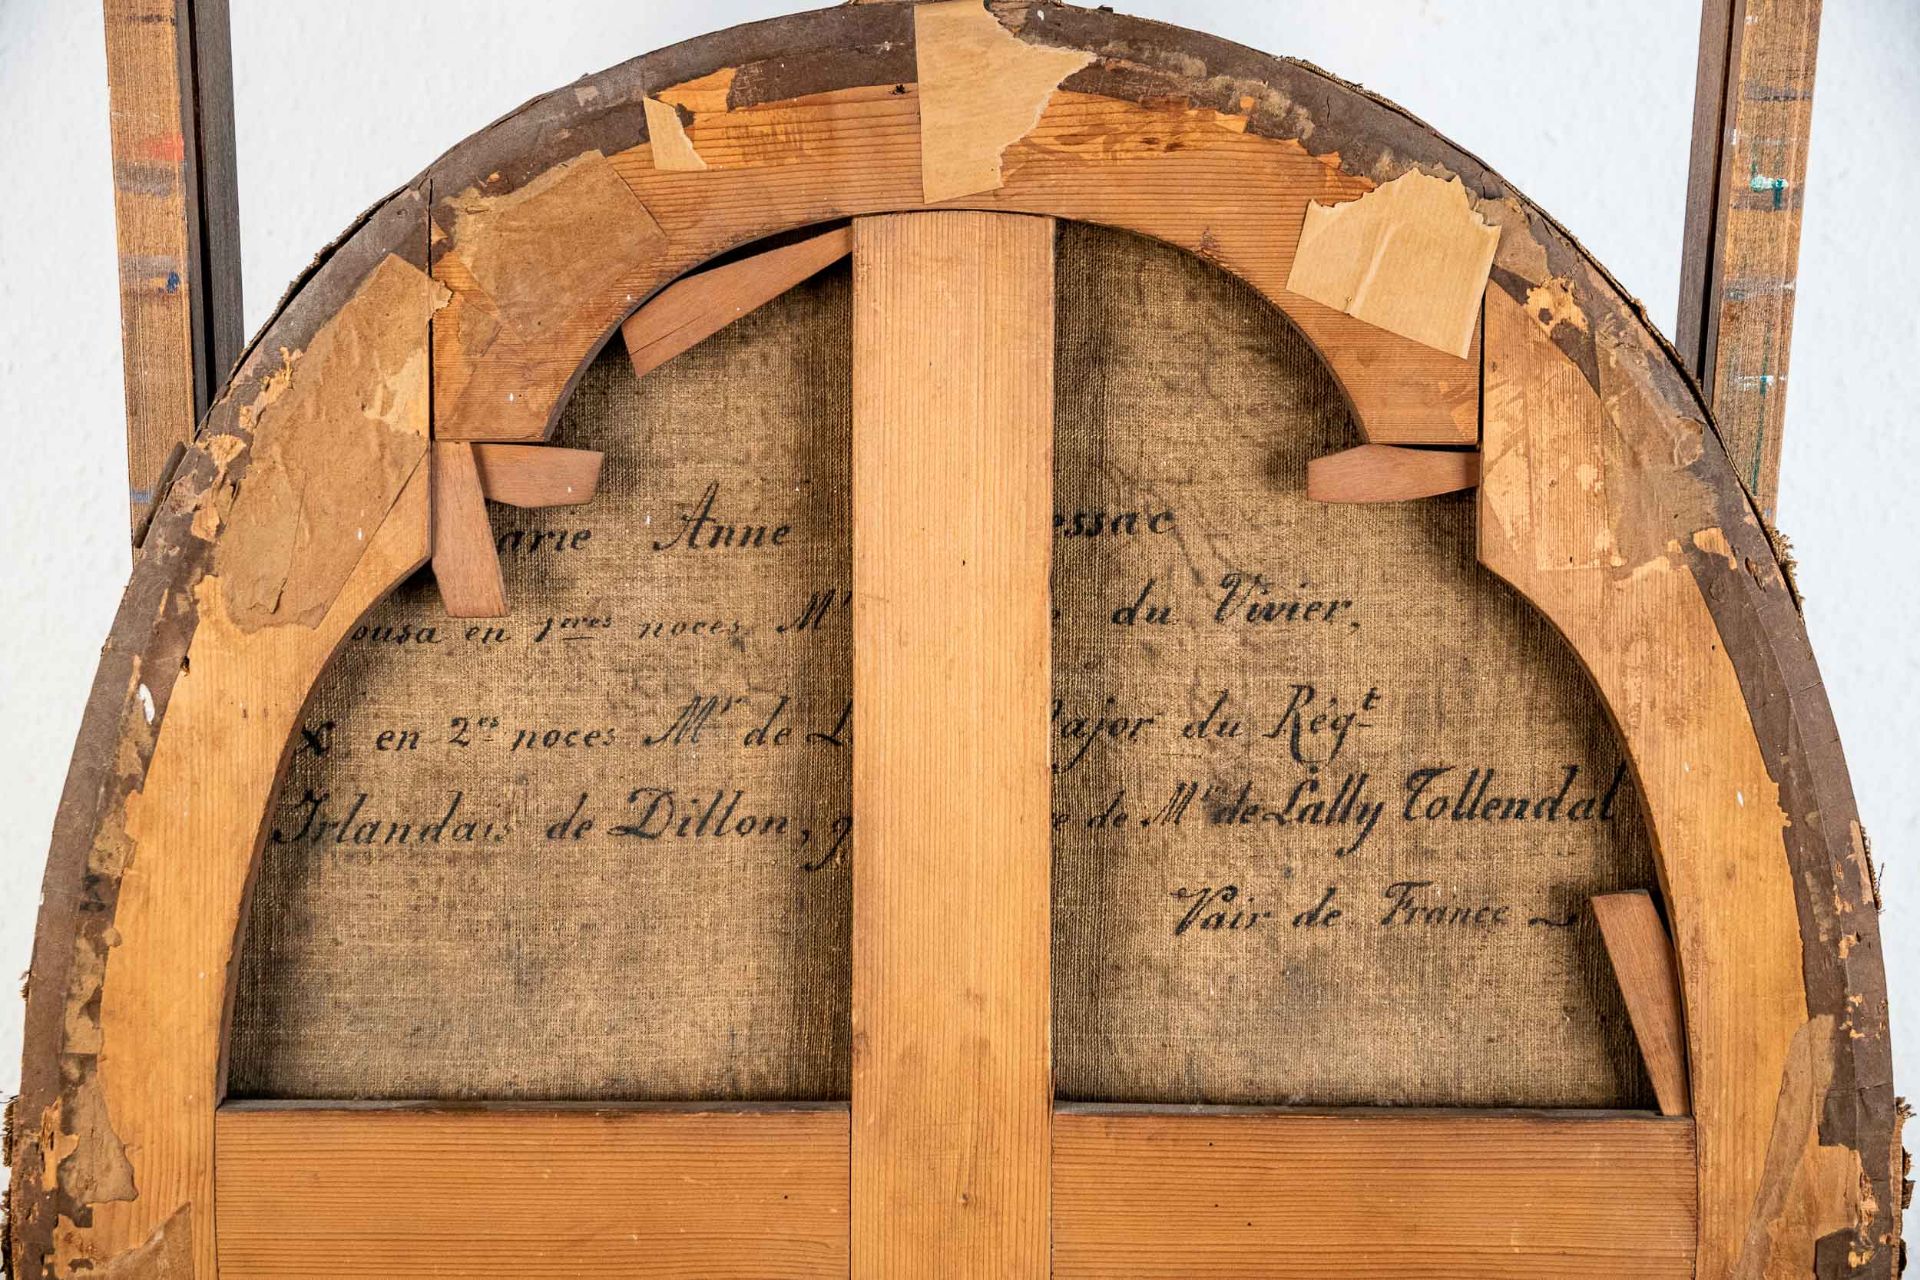 arie Anne essac
ousa en 1eres noces Mr du Vivier,
& en 2es noces Mr de L ajor du Régt
Irlandais de Dillon, de Mr de Lally Tollendal
Pair de France